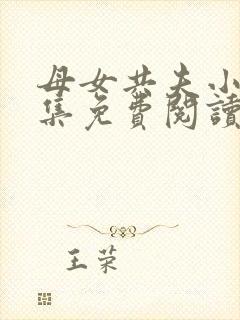 母女共夫小
集免費閱讀
王荣